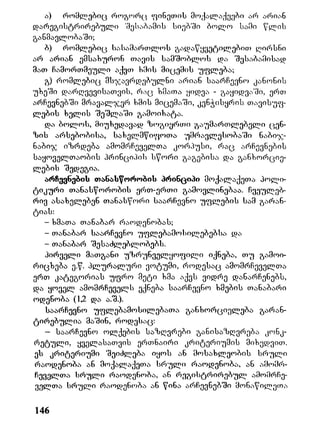 ა) რომლებიც როგორც ფინეთის მოქალაქეები არ არიან
დარეგისტრირებული შესაბამის სიებში ბოლო სამი წლის
განმავლობაში;
ბ) რომლებიც სასამართლოს გადაწყვეტილებით ღირსნი
არ არიან ემსახურონ თავის სამშობლოს და შესაბამისად
მათ ჩამორთმეული აქვთ ხმის მიცემის უფლება;
გ) რომლებიც მსჯავრდებულნი არიან საარჩევნო კანონის
უხეში დარღვევისათვის, რაც ხმათა ყიდვა - გაყიდვაში, ერთ
არჩევნებში მრავალჯერ ხმის მიცემაში, კენჭისყრის თავისუფ-
ლების ხელის შეშლაში გამოიხატა.
და ბოლოს, მიუხედავად ზოგიერთი გაუმართლებელი ცენ-
ზის არსებობისა, სახელმწიფოთა უმრავლესობაში ნაბიჯ-
ნაბიჯ იზრდება ამომრჩეველთა კორპუსი, რაც არჩევნების
საყოველთაობის პრინციპის სწორი გაგებისა და განხორციე-
ლების შედეგია.
არჩევნების თანასწორობის პრინციპი მოქალაქეთა პოლი-
ტიკური თანასწორობის ერთ-ერთი გამოვლინებაა. ჩვეულებ-
რივ ასახელებენ თანასწორი საარჩევნო უფლების სამ გარან-
ტიას:
– ხმათა თანაბარ რაოდენობას;
– თანაბარ საარჩევნო უფლებამოსილებებსა და
– თანაბარ შესაძლებლობებს.
პირველი მათგანი უზრუნველყოფილი იქნება, თუ გამოი-
რიცხება ე.წ. პლურალური ვოტუმი, როდესაც ამომრჩეველთა
ერთ კატეგორიას უფრო მეტი ხმა აქვს ვიდრე დანარჩენებს,
და ყოველ ამომრჩეველს ექნება საარჩევნო ხმების თანაბარი
ოდენობა (1,2 და ა.შ.).
საარჩევნო უფლებამოსილებათა განხორციელება გარან-
ტირებულია მაშინ, როდესაც:
– საარჩევნო ოლქების საზღვრები განისაზღვრება კონკ-
რეტული, ყველასათვის ერთნაირი კრიტერიუმის მიხედვით.
ეს კრიტერიუმი შეიძლება იყოს ან მოსახლეობის სრული
რაოდენობა ან მოქალაქეთა სრული რაოდენობა, ან ამომრ-
ჩეველთა სრული რაოდენობა, ან რეგისტრირებულ ამომრჩე-
ველთა სრული რაოდენობა ან წინა არჩევნებში მონაწილეთა
146